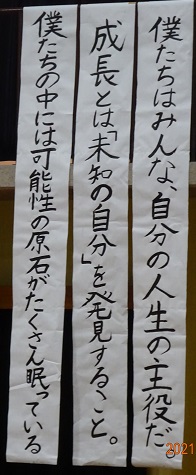 僕たちはみんな、自分の人生の主役だ
成長とは「未知の自分」を発見すること。
僕たちの中には可能性の原石がたくさん眠っている
2021